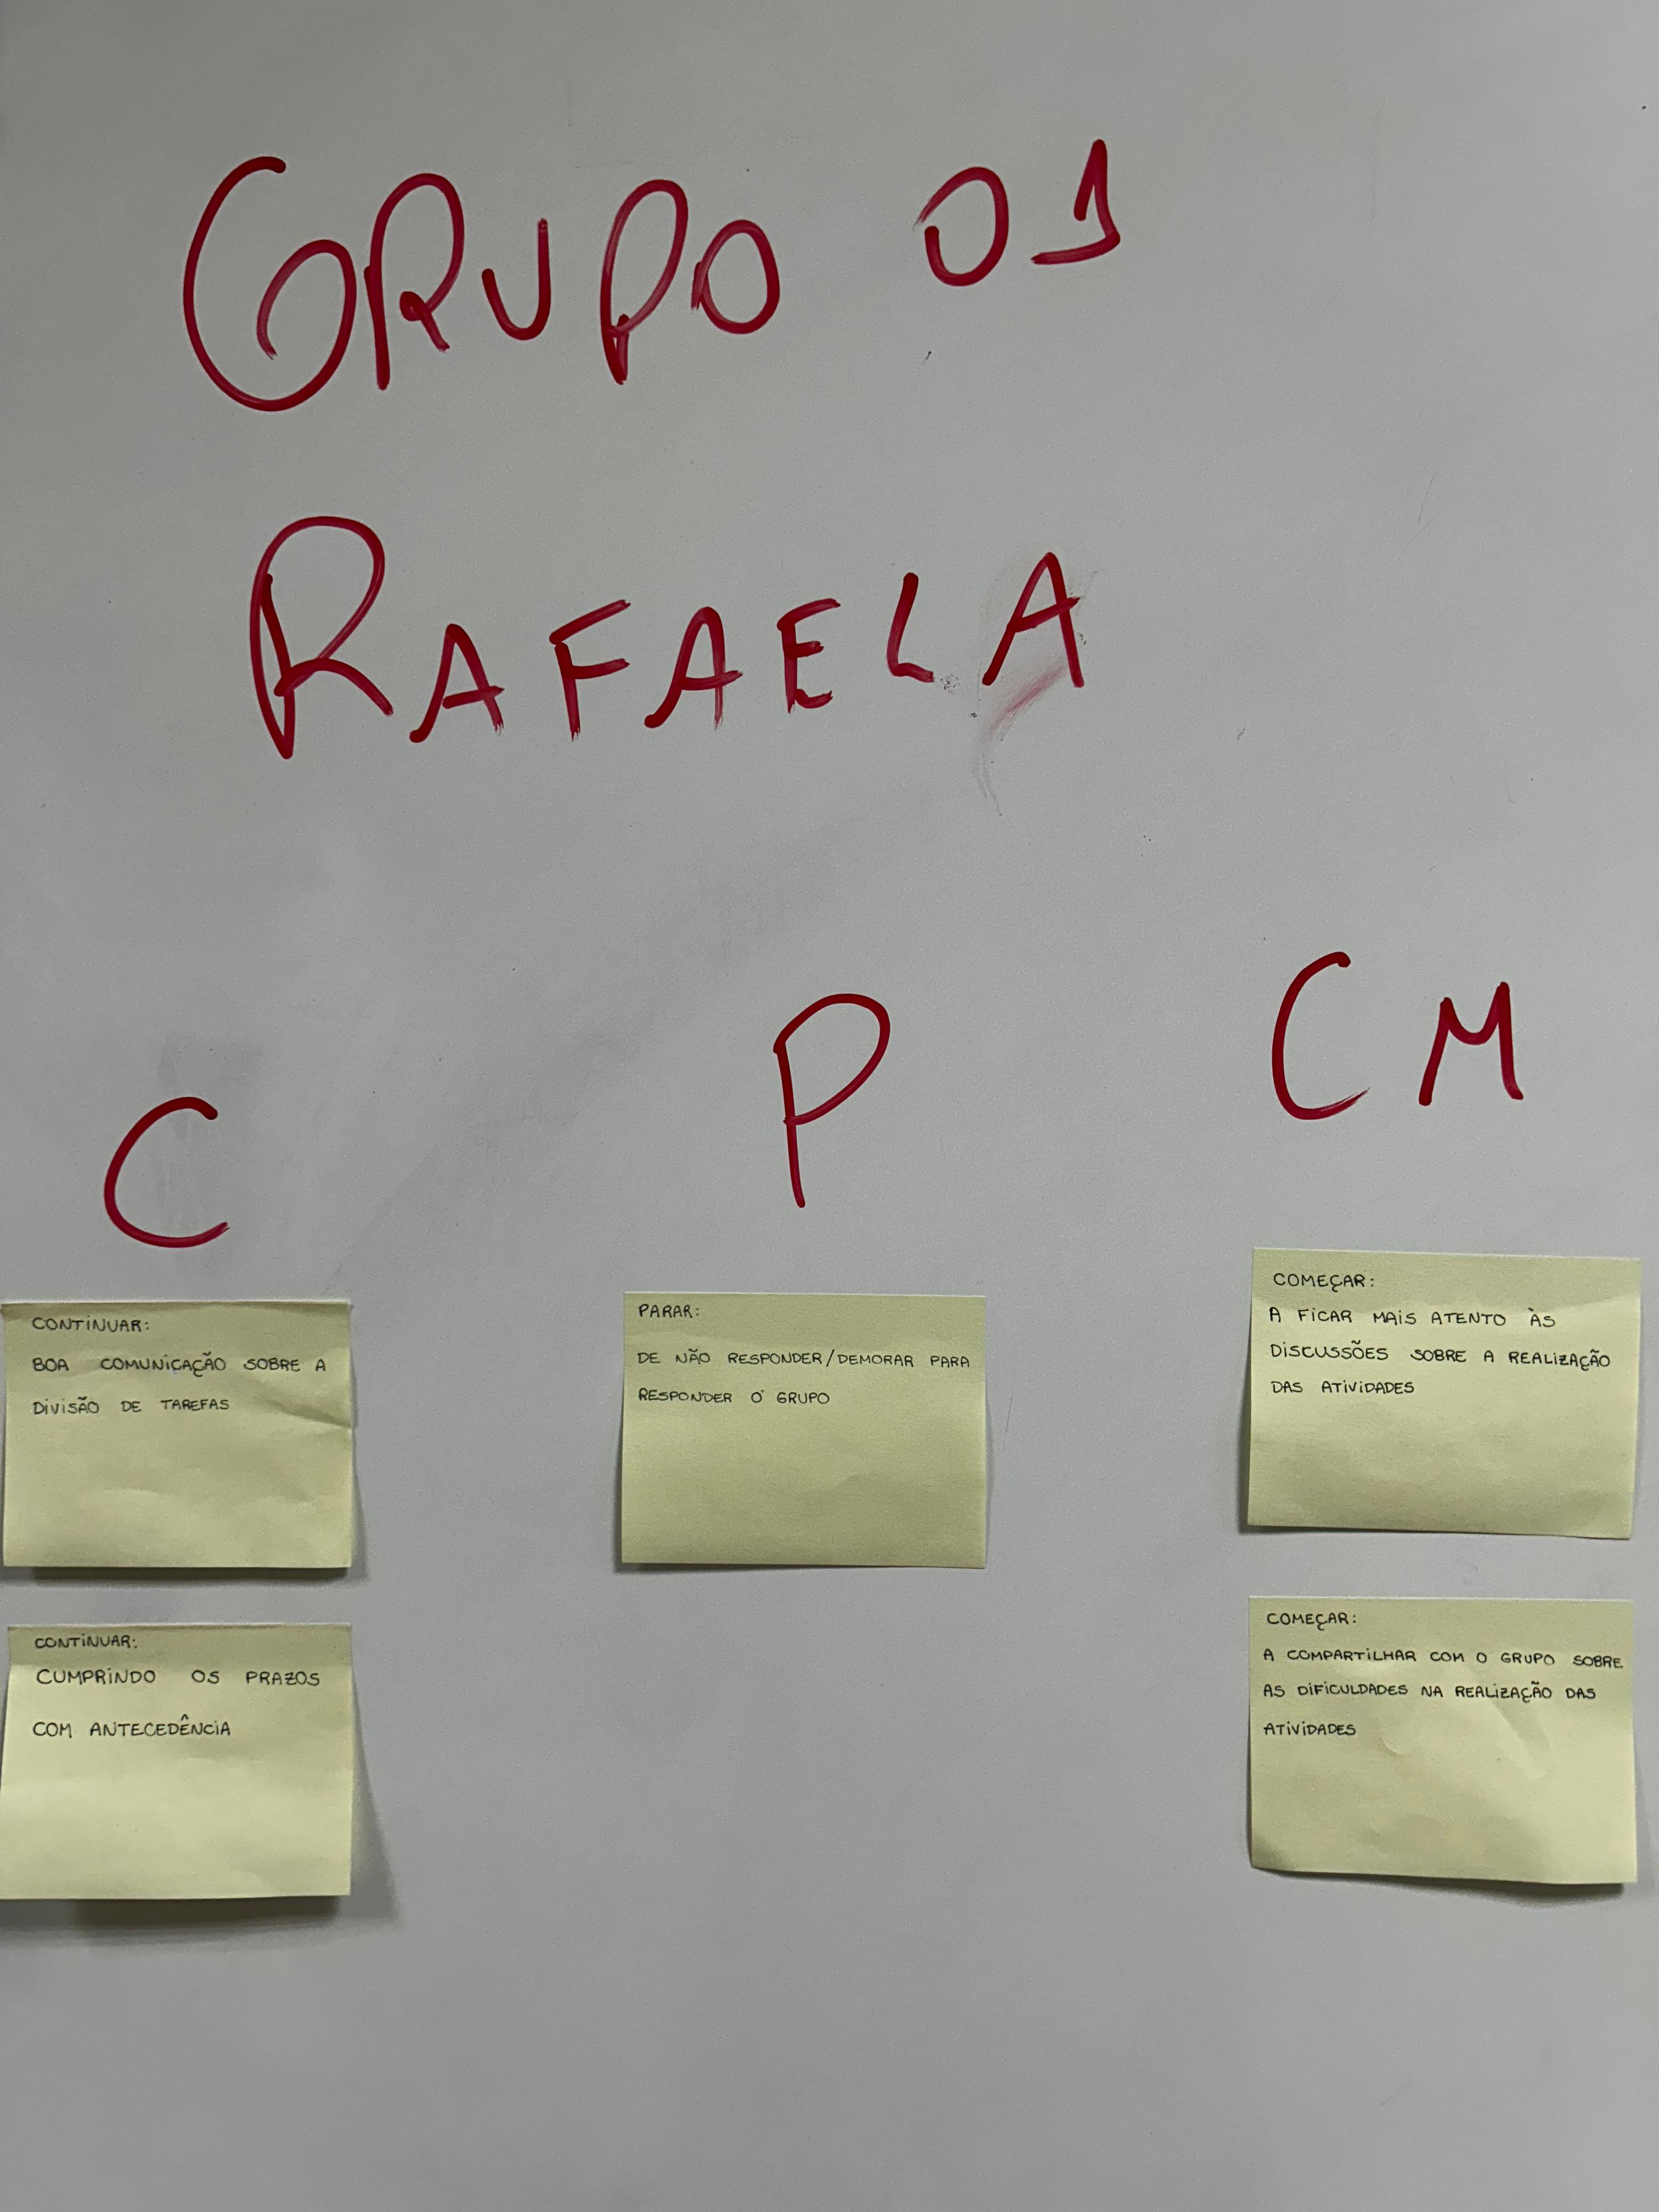 GRUPO 01
RAFAELA
C
P
CM
CONTINUAR:
BOA COMUNICAÇÃO SOBRE A
DIVISÃO DE TAREFAS
CONTINUAR:
CUMPRINDO OS PRAZOS
COM ANTECEDÊNCIA
PARAR:
DE NÃO RESPONDER/DEMORAR PARA
RESPONDER O GRUPO
COMEÇAR:
A FICAR MAIS ATENTO ÀS
DISCUSSÕES SOBRE A REALIZAÇÃO
DAS ATIVIDADES
COMEÇAR:
A COMPARTILHAR COM O GRUPO SOBRE
AS DIFICULDADES NA REALIZAÇÃO DAS
ATIVIDADES